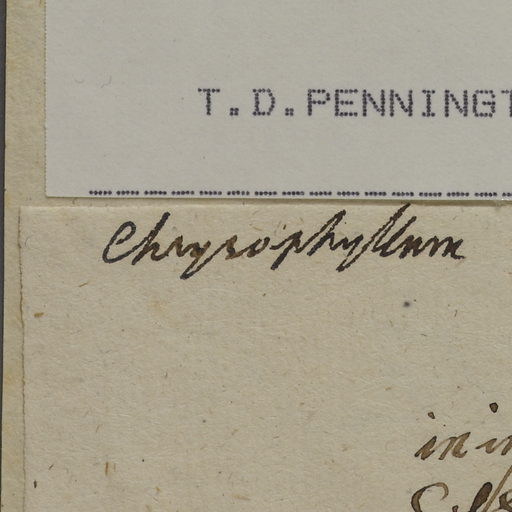 T.D.PENNINGT
Chrysophyllum
in in